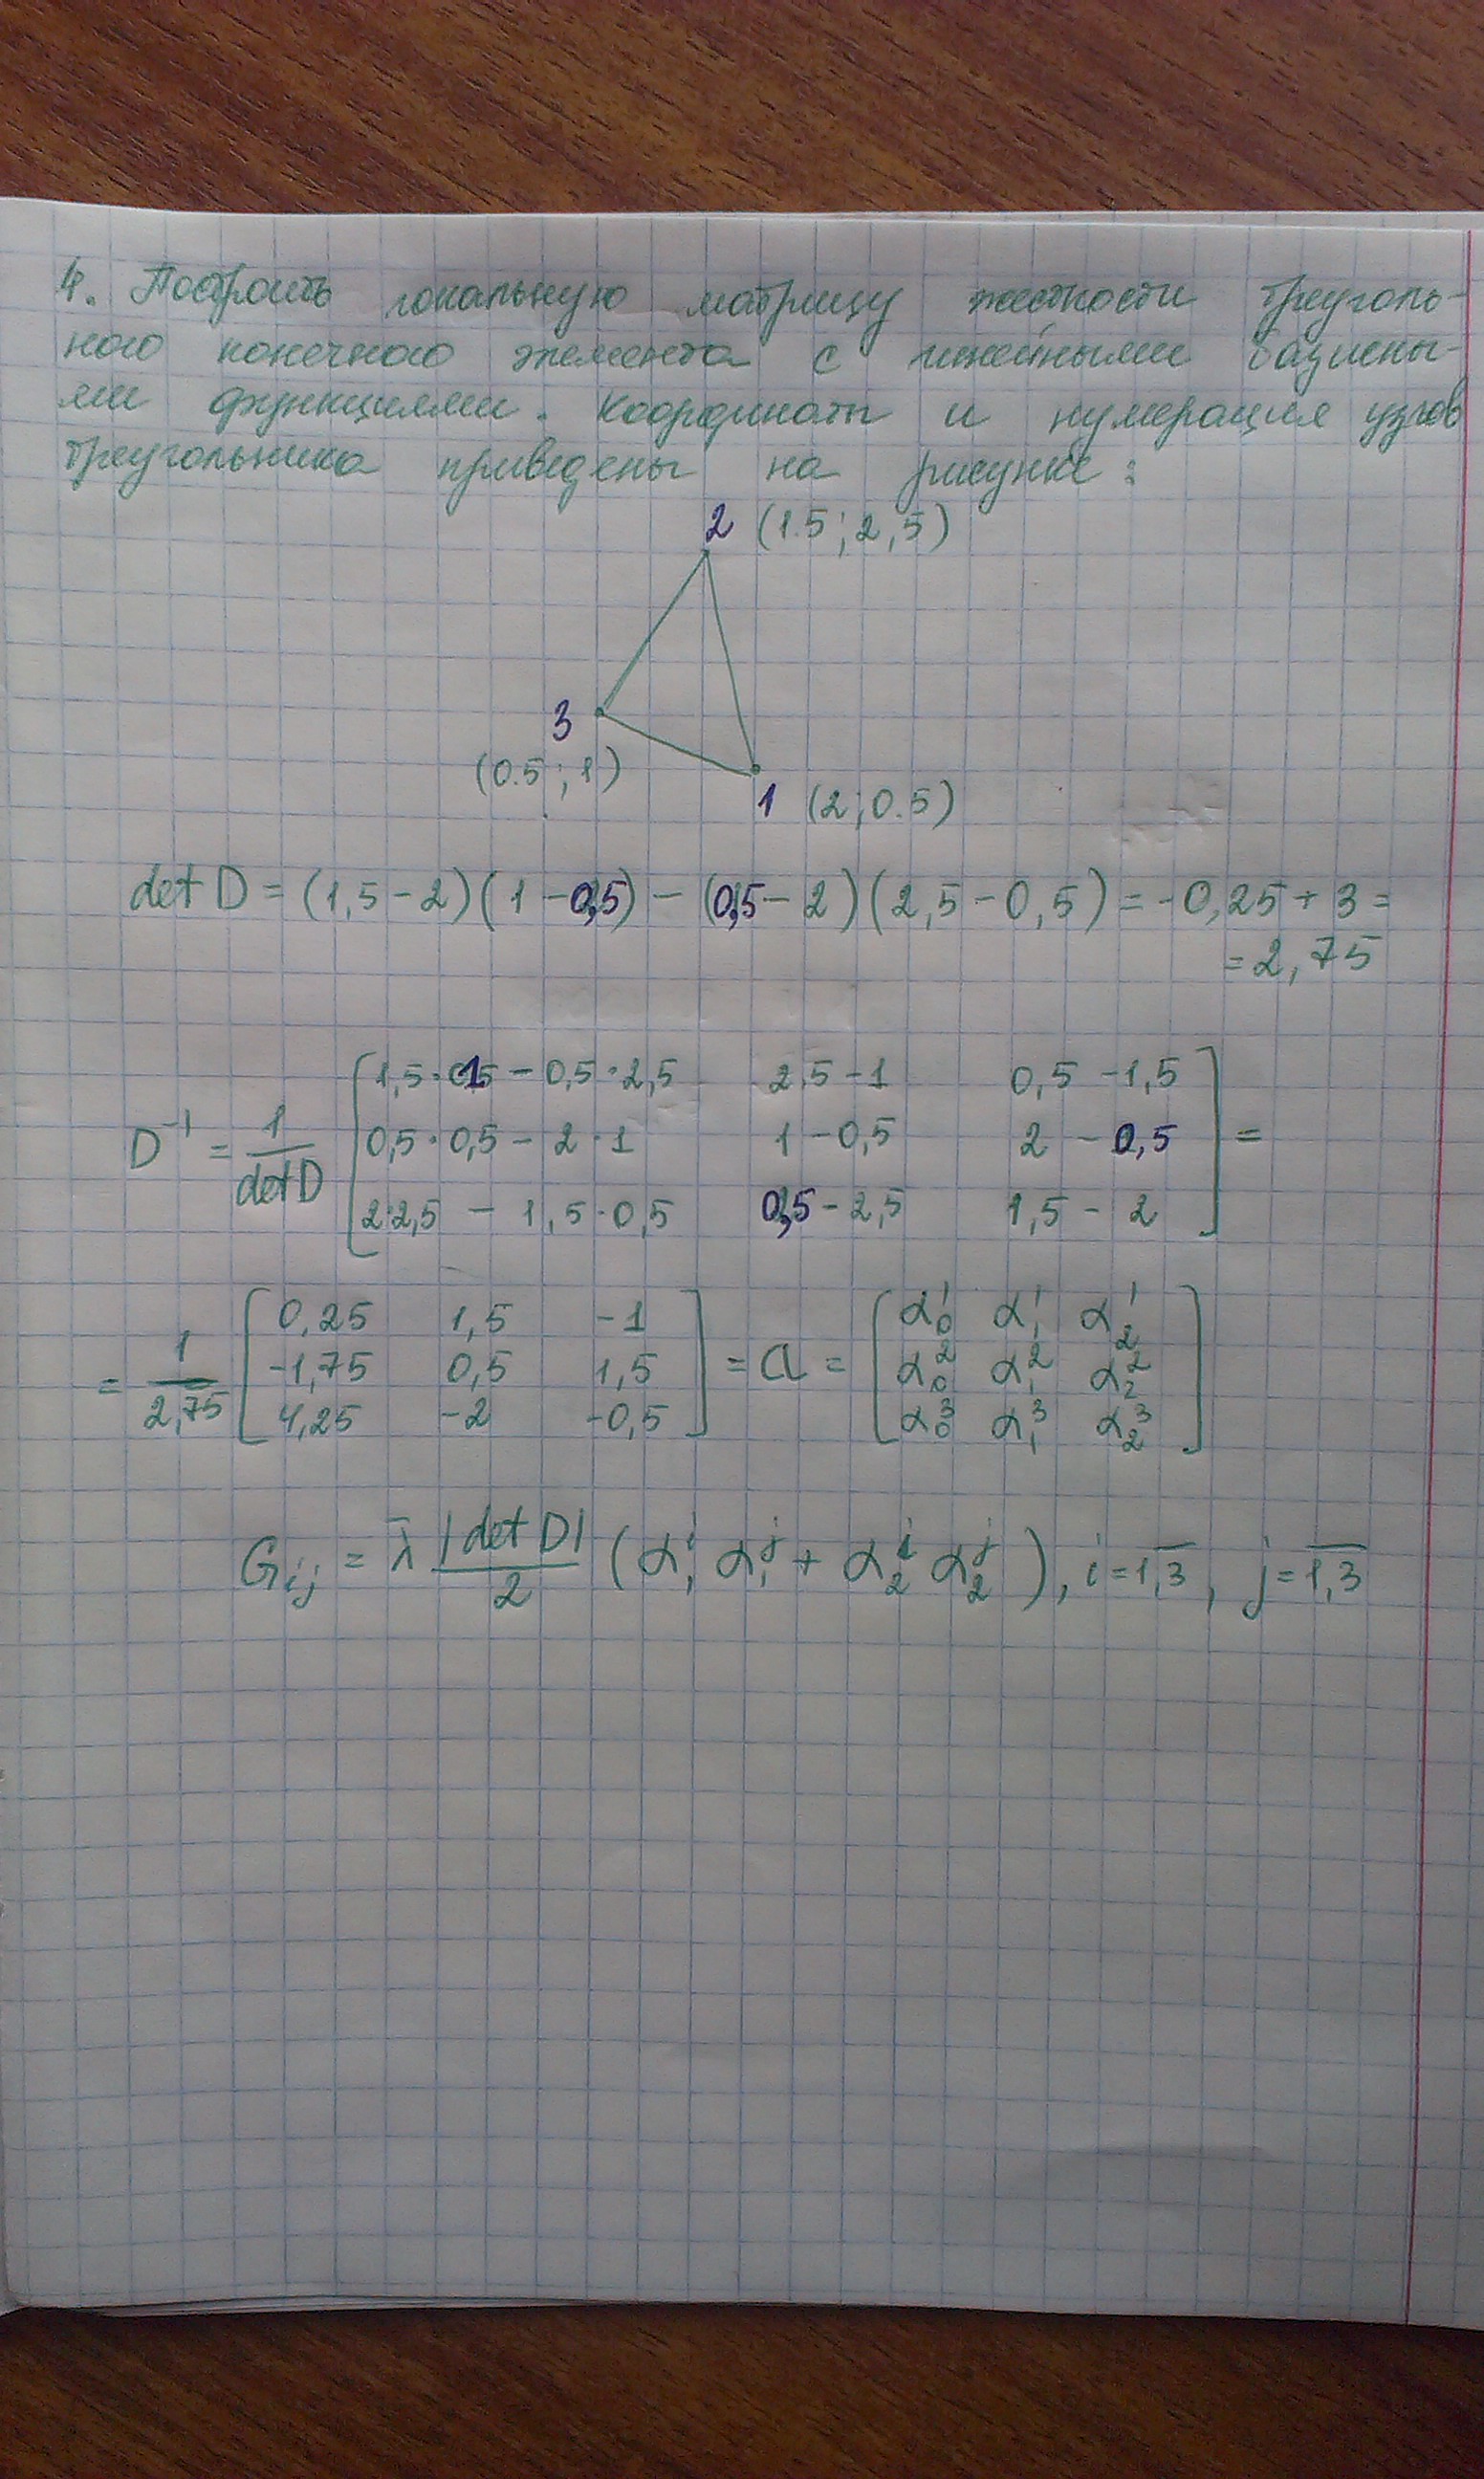 4. Построить локальную матрицу жесткости треуголь-
ного конечного элемента с линейными базисны-
ми функциями. Координаты и нумерация узлов
треугольника приведены на рисунке:
2 (1.5; 2,5)
3
(0.5; 1)
1 (2; 0.5)
det D = (1,5 - 2)(1 - 0,5) - (0,5 - 2)(2,5 - 0,5) = -0,25 + 3 =
= 2,75
1,5 · 1 - 0,5 · 2,5 2.5 - 1 0,5 - 1,5
D⁻¹ = 1/det D [0,5 · 0,5 - 2 · 1 1 - 0,5 2 - 0,5] =
2·2,5 - 1,5·0,5 0,5 - 2,5 1,5 - 2
0,25 1,5 -1 α₀¹ α₁¹ α₂¹
= 1/2,75 [-1,75 0,5 1,5] = a = [α₀² α₁² α₂²]
4,25 -2 -0,5 α₀³ α₁³ α₂³
Gᵢⱼ = λ̄ |det D|/2 (α₁ⁱ α₁ʲ + α₂ⁱ α₂ʲ), i = 1,3, j = 1,3